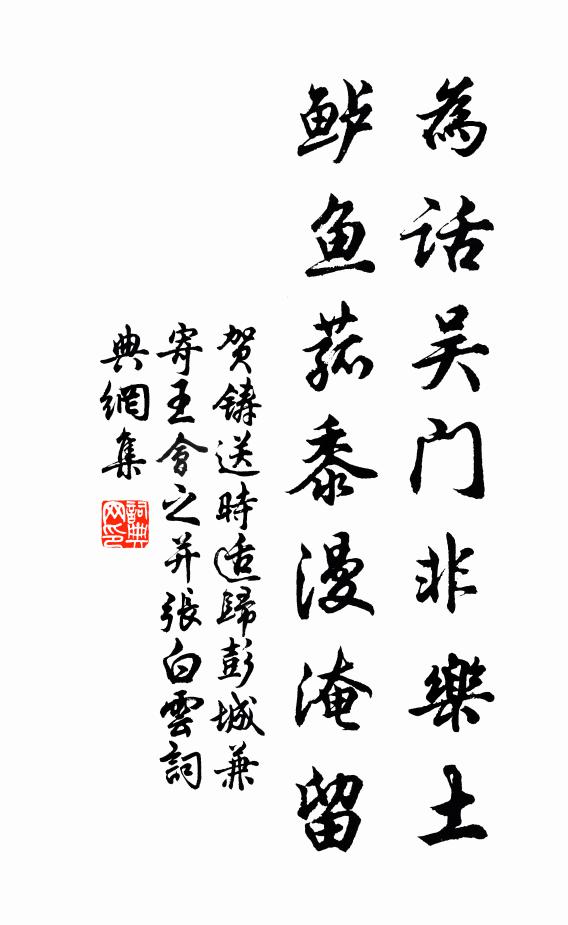 為話吴门非樂土
鲈鱼菰黍漫淹留
贺鑄送時适歸彭城兼
寄王會之并張白雲詞
典網集
詞典网印